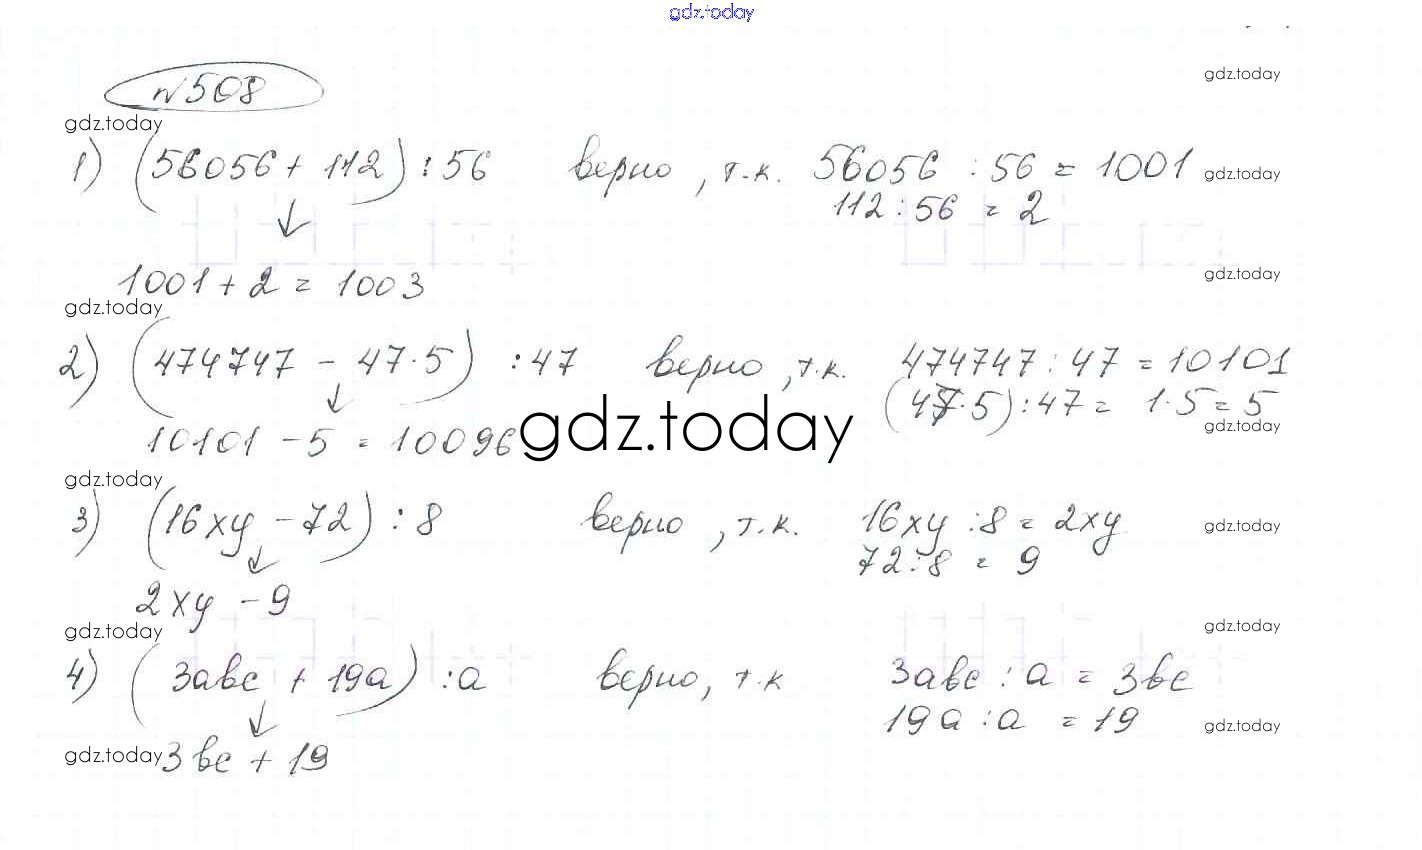 gdz.today
№508
gdz.today
gdz.today
1) (56056 + 112) : 56 верно, т.к. 56056 : 56 = 1001
gdz.today
112 : 56 = 2
1001 + 2 = 1003
gdz.today
gdz.today
2) (474747 - 47·5) : 47 верно, т.к. 474747 : 47 = 10101
(47·5) : 47 = 1·5 = 5
10101 - 5 = 10096
gdz.today
gdz.today
gdz.today
3) (16xy - 72) : 8 верно, т.к. 16xy : 8 = 2xy
gdz.today
72 : 8 = 9
2xy - 9
gdz.today
gdz.today
4) (3abc + 19a) : a верно, т.к 3abc : a = 3bc
19a : a = 19
gdz.today
gdz.today
3bc + 19